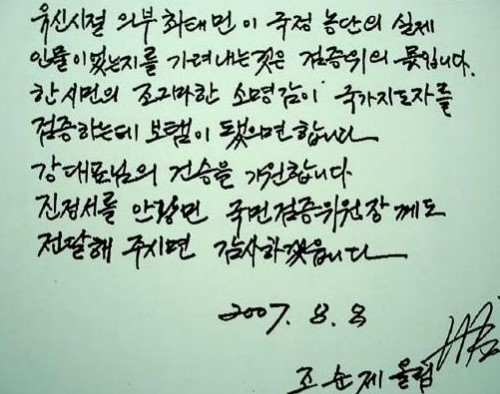 유신시절 의부 최태민이 국정 농단의 실제
인물이었는지를 가려내는것은 검증위의 몫입니다.
한 시민의 조그마한 소명감이 국가지도자를
검증하는데 보탬이 됐으면 합니다
강대표님의 건승을 기원합니다
진정서를 안강민 국민검증위원장께도
전달해 주시면 감사하겠읍니다
2007. 8. 8
조순제 올림